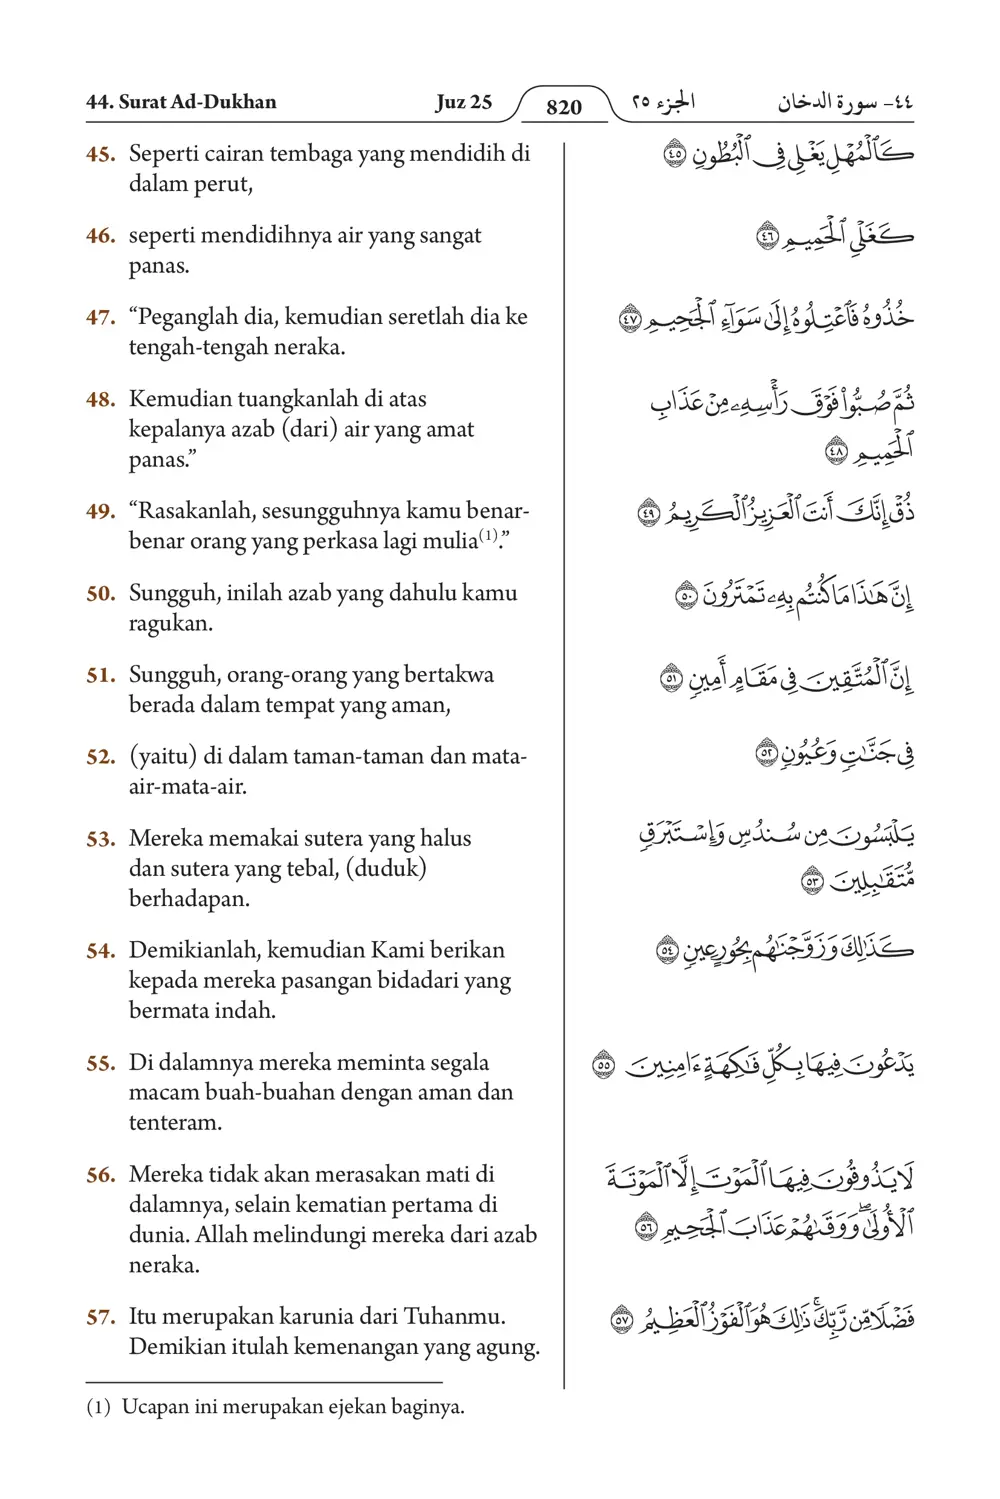 44. Surat Ad-Dukhan Juz 25 820 الجزء ٢٥ ٤٤- سورة الدخان
45. Seperti cairan tembaga yang mendidih di
dalam perut,
46. seperti mendidihnya air yang sangat
panas.
47. “Peganglah dia, kemudian seretlah dia ke
tengah-tengah neraka.
48. Kemudian tuangkanlah di atas
kepalanya azab (dari) air yang amat
panas.”
49. “Rasakanlah, sesungguhnya kamu benar-
benar orang yang perkasa lagi mulia(1).”
50. Sungguh, inilah azab yang dahulu kamu
ragukan.
51. Sungguh, orang-orang yang bertakwa
berada dalam tempat yang aman,
52. (yaitu) di dalam taman-taman dan mata-
air-mata-air.
53. Mereka memakai sutera yang halus
dan sutera yang tebal, (duduk)
berhadapan.
54. Demikianlah, kemudian Kami berikan
kepada mereka pasangan bidadari yang
bermata indah.
55. Di dalamnya mereka meminta segala
macam buah-buahan dengan aman dan
tenteram.
56. Mereka tidak akan merasakan mati di
dalamnya, selain kematian pertama di
dunia. Allah melindungi mereka dari azab
neraka.
57. Itu merupakan karunia dari Tuhanmu.
Demikian itulah kemenangan yang agung.
(1) Ucapan ini merupakan ejekan baginya.
كَٱلۡمُهۡلِ يَغۡلِي فِي ٱلۡبُطُونِ ٤٥
كَغَلۡيِ ٱلۡحَمِيمِ ٤٦
خُذُوهُ فَٱعۡتِلُوهُ إِلَىٰ سَوَآءِ ٱلۡجَحِيمِ ٤٧
ثُمَّ صُبُّواْ فَوۡقَ رَأۡسِهِۦ مِنۡ عَذَابِ
ٱلۡحَمِيمِ ٤٨
ذُقۡ إِنَّكَ أَنتَ ٱلۡعَزِيزُ ٱلۡكَرِيمُ ٤٩
إِنَّ هَٰذَا مَا كُنتُم بِهِۦ تَمۡتَرُونَ ٥٠
إِنَّ ٱلۡمُتَّقِينَ فِي مَقَامٍ أَمِينٖ ٥١
فِي جَنَّٰتٖ وَعُيُونٖ ٥٢
يَلۡبَسُونَ مِن سُندُسٖ وَإِسۡتَبۡرَقٖ
مُّتَقَٰبِلِينَ ٥٣
كَذَٰلِكَ وَزَوَّجۡنَٰهُم بِحُورٍ عِينٖ ٥٤
يَدۡعُونَ فِيهَا بِكُلِّ فَٰكِهَةٍ ءَامِنِينَ ٥٥
لَا يَذُوقُونَ فِيهَا ٱلۡمَوۡتَ إِلَّا ٱلۡمَوۡتَةَ
ٱلۡأُولَىٰۖ وَوَقَىٰهُمۡ عَذَابَ ٱلۡجَحِيمِ ٥٦
فَضۡلٗا مِّن رَّبِّكَۚ ذَٰلِكَ هُوَ ٱلۡفَوۡزُ ٱلۡعَظِيمُ ٥٧